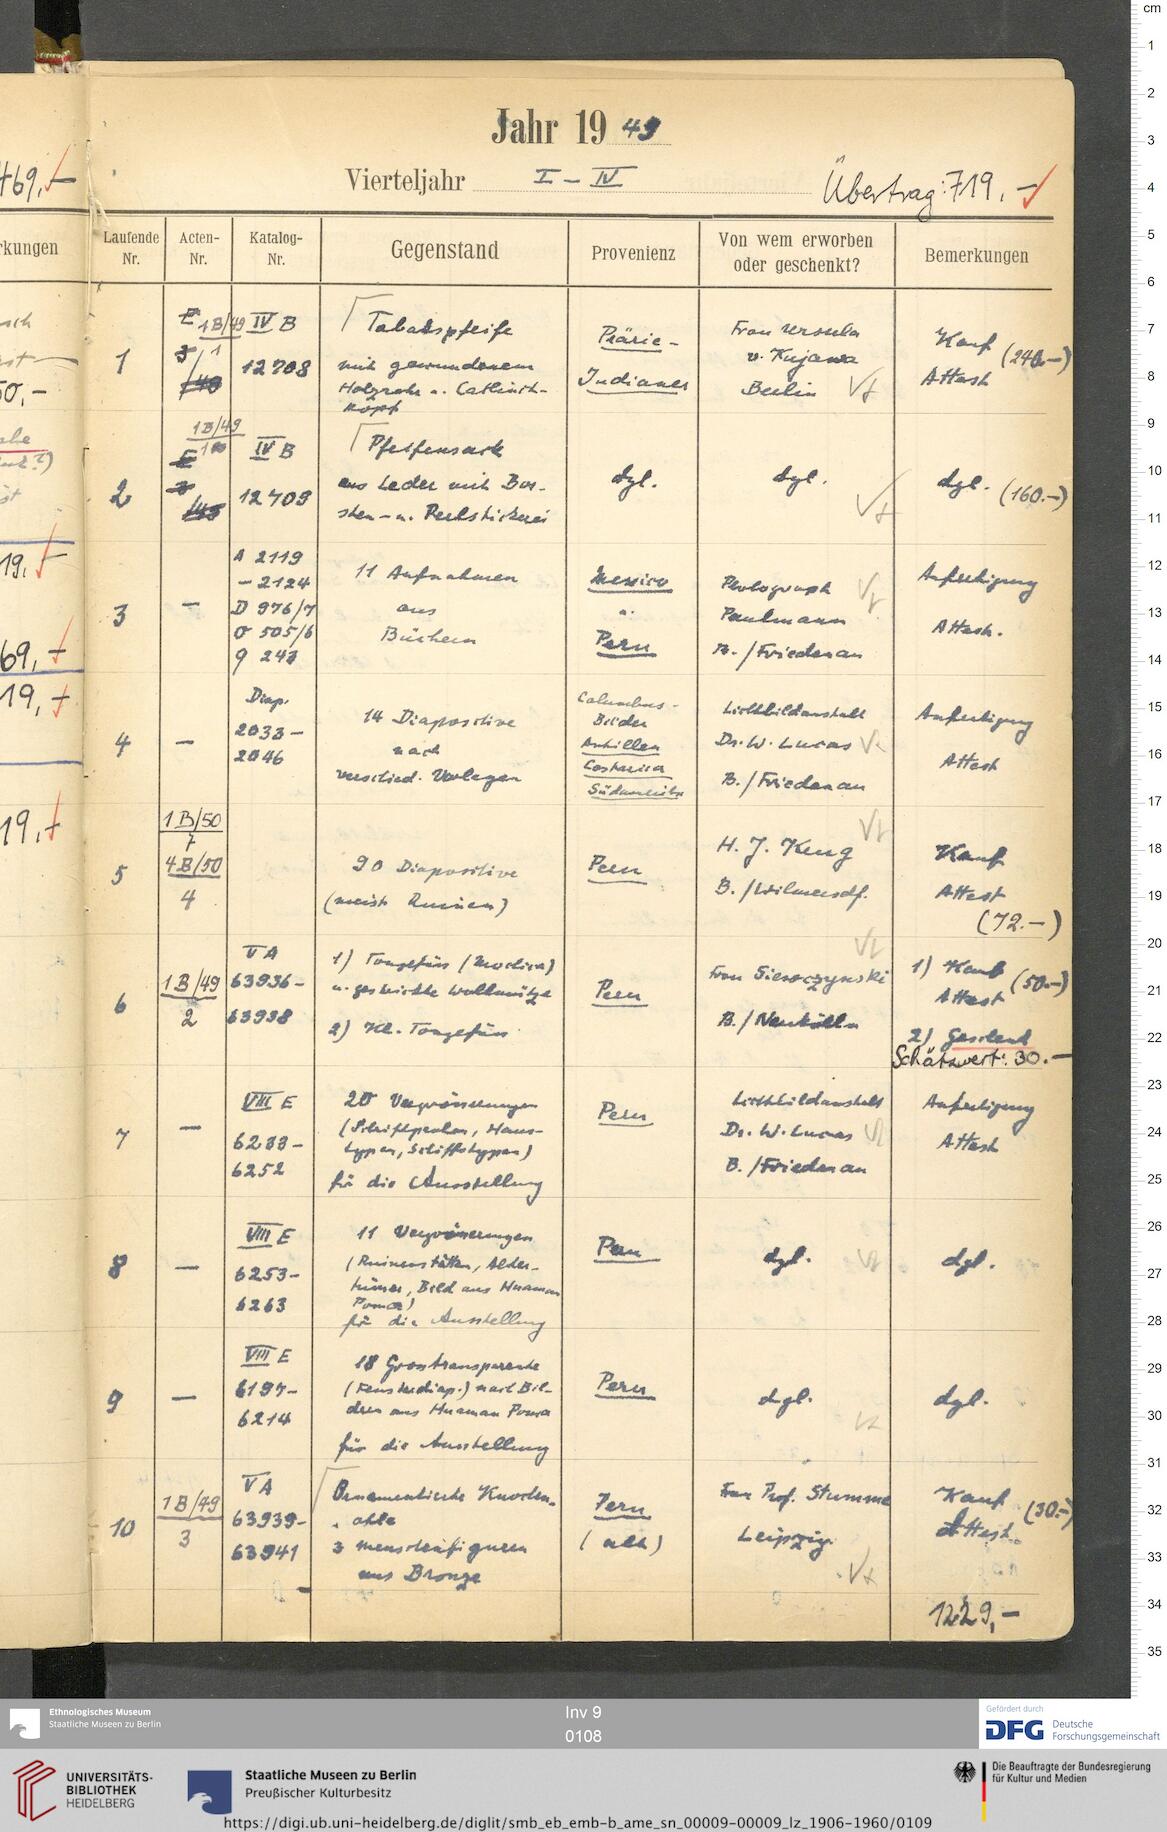 Jahr 19 49
Vierteljahr I – IV
Übertrag: 719.–
469,–
rkungen
Laufende Nr.
Acten-Nr.
Katalog-Nr.
Gegenstand
Provenienz
Von wem erworben oder geschenkt?
Bemerkungen
50,–
19,–
69,–
19,–
19,–
1
1B/49
1
IV B
12708
Tabakspfeife
mit gewundenem
Holzrohr u. Catlinit-
kopf
Prärie-
Indianer
Frau Ursula
v. Kujawa
Berlin
Kauf (240.–)
Attest
2
1B/49
IV B
12709
Pfeifensack
aus Leder mit Bor-
sten- u. Perlstickerei
dgl.
dgl.
dgl. (160.–)
3
–
A 2119
– 2124
D 976/7
O 505/6
11 Aufnahmen
aus
Büchern
Mexico
u.
Peru
Photograph
Paulmann
B./Friedenau
Anfertigung
Attest.
4
–
Diap.
2033 –
2046
14 Diapositive
nach
verschied. Vorlagen
Columbus-
Bilder
Antillen
Costarica
Südamerika
Lichtbildanstalt
Dr. W. Lucas
B./Friedenau
Anfertigung
Attest
5
1B/50
7
4B/50
4
90 Diapositive
(meist Ruinen)
Peru
H. J. King
B./Wilmersdf.
Kauf
Attest
(72.–)
6
1B/49
2
V A
63936 –
63938
1) Tongefäss (Mochica)
u. gestrickte Wollmütze
2) Kl. Tongefäss
Peru
Frau Sieroczynski
B./Neukölln
1) Kauf (50.–)
Attest
2) Geschenk
Schätzwert: 30.–
7
–
VIII E
6233 –
6252
20 Vergrösserungen
(Schiffproben, Haus-
typen, Schiffstypen)
für die Ausstellung
Peru
Lichtbildanstalt
Dr. W. Lucas
B./Friedenau
Anfertigung
Attest
8
–
VIII E
6253 –
6263
11 Vergrösserungen
(Ruinenstätten, Alter-
tümer, Bild aus Huaman
Poma)
für die Ausstellung
Peru
dgl.
dgl.
9
–
VIII E
6197 –
6214
18 Grosstransparente
(Fensterdiap.) nach Bil-
dern aus Huaman Poma
für die Ausstellung
Peru
dgl.
dgl.
10
1B/49
3
V A
63939 –
63941
Ornamentierte Knochen-
ahle
3 Menschenfiguren
aus Bronze
Peru
(alt)
Frau Prof. Stumme
Leipzig
Kauf (30.–)
Attest.
1229,–
cm
1
2
3
4
5
6
7
8
9
10
11
12
13
14
15
16
17
18
19
20
21
22
23
24
25
26
27
28
29
30
31
32
33
34
35
Ethnologisches Museum
Staatliche Museen zu Berlin
Inv 9
0108
Gefördert durch
DFG Deutsche
Forschungsgemeinschaft
UNIVERSITÄTS-
BIBLIOTHEK
HEIDELBERG
Staatliche Museen zu Berlin
Preußischer Kulturbesitz
Die Beauftragte der Bundesregierung
für Kultur und Medien
https://digi.ub.uni-heidelberg.de/diglit/smb_eb_emb-b_ame_sn_00009-00009_lz_1906-1960/0109